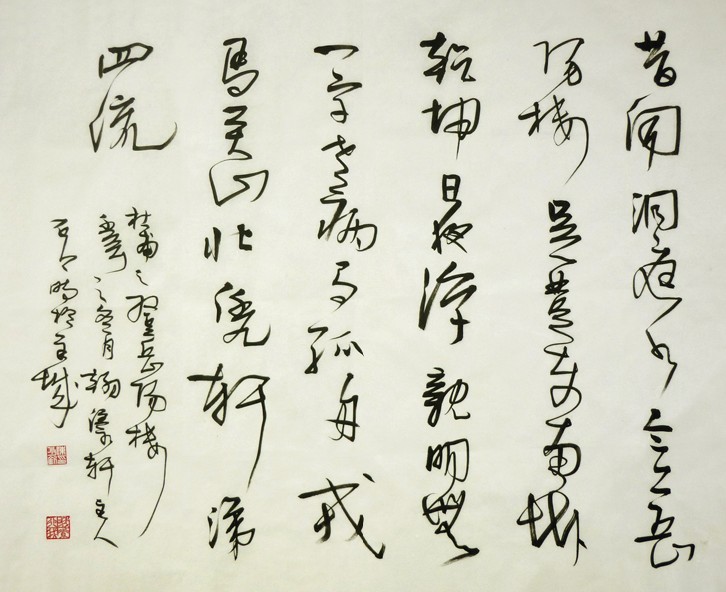 昔闻洞庭水今上岳
阳楼吴楚东南坼
乾坤日夜浮親朋無
一字老病有孤舟戎
馬关山北凭軒涕
四流
杜甫之登岳阳楼
冬月翰濠轩主人
时於